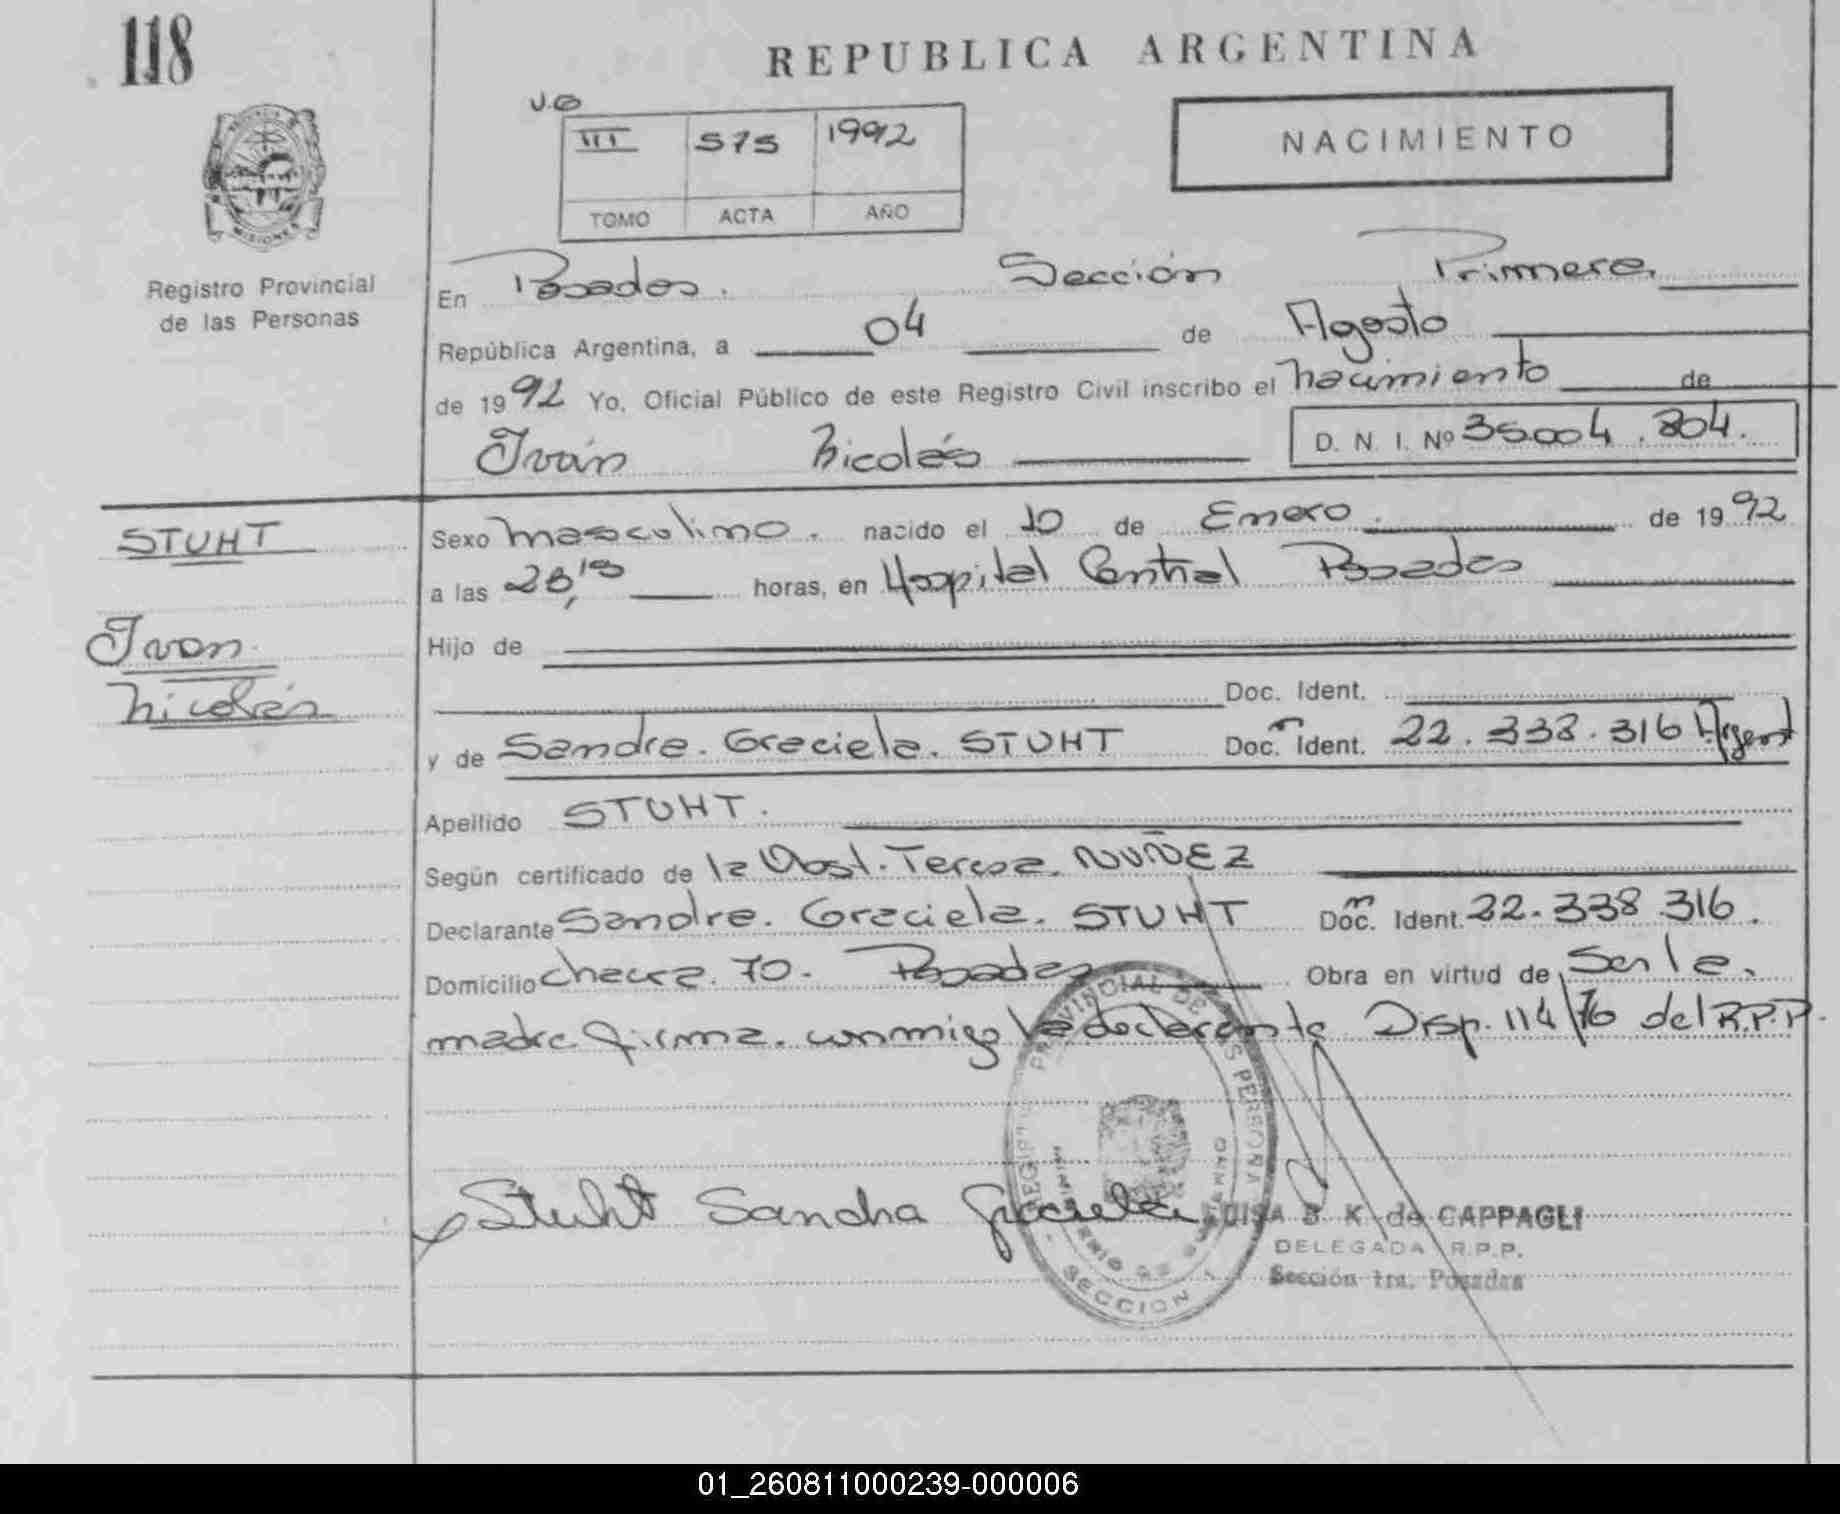 118
REPUBLICA ARGENTINA
NACIMIENTO
III 575 1992
TOMO ACTA AÑO
MISIONES
Registro Provincial
de las Personas
En Posadas. Sección Primera
República Argentina, a 04 de Agosto
de 1992 Yo, Oficial Público de este Registro Civil inscribo el nacimiento de
Iván Nicolás D. N. I. Nº 35.004.804.
STUHT
Iván
Nicolás
Sexo masculino. nacido el 10 de Enero. de 1992
a las horas, en Hospital Central Posadas
Hijo de
Doc. Ident.
y de Sandra. Graciela. STUHT Doc. Ident. 22.338.316 Argent
Apellido STUHT.
Según certificado de la Obst. Teresa. NUÑEZ
Declarante Sandra. Graciela. STUHT Doc. Ident. 22.338.316.
Domicilio chacra 70. Posadas Obra en virtud de Ser la
madre firma conmigo la declarante Disp. 114/76 del R.P.P.
Stuht Sandra Graciela
PROVINCIAL DE LAS PERSONAS
MINISTERIO DE GOBIERNO
SECCION 1
LUISA B. K de CAPPAGLI
DELEGADA R.P.P.
Sección 1ra. Posadas
01_260811000239-000006